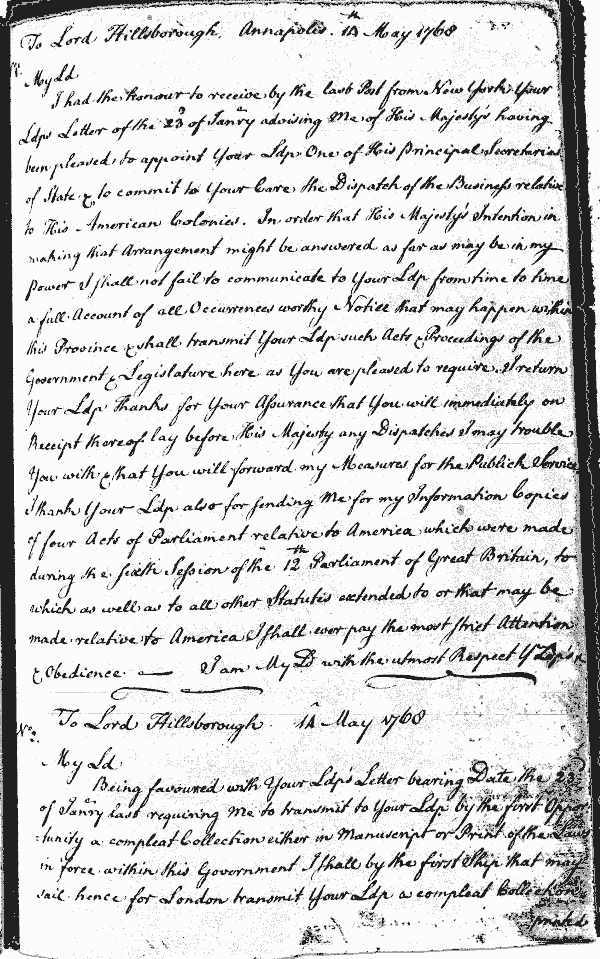 To Lord Hillsborough. Annapolis. 14th May 1768
My Ld
I had the honour to receive by the last Post from New York Your
Ldps Letter of the 23d of Janry advising Me of His Majesty's having
been pleased to appoint Your Ldp One of His Principal Secretaries
of State & to commit to Your Care the Dispatch of the Business relative
to His American Colonies. In order that His Majesty's Intention in
making that Arrangement might be answered as far as may be in my
power I shall not fail to communicate to Your Ldp from time to time
a full Account of all Occurrences worthy Notice that may happen within
this Province & shall transmit Your Ldp such Acts & Proceedings of the
Government & Legislature here as You are pleased to require. I return
Your Ldp Thanks for Your Assurance that You will immediately on
Receipt thereof lay before His Majesty any Dispatches I may trouble
You with & that You will forward my Measures for the Publick Service
I thank Your Ldp also for sending Me for my Information Copies
of four Acts of Parliament relative to America which were made
during the sixth Session of the 12th Parliament of Great Britain, to
which as well as to all other Statutes extended to or that may be
made relative to America I shall ever pay the most strict Attention
& Obedience — I am My Ld with the utmost Respect Yr Ldp's
No. 2.
To Lord Hillsborough. 14 May 1768
My Ld
Being favoured with Your Ldp's Letter bearing Date the 23d
of Janry last requiring Me to transmit to Your Ldp by the first Oppor
-tunity a compleat Collection either in Manuscript or Print of the Laws
in force within this Government I shall by the first Ship that may
sail hence for London transmit Your Ldp a compleat Collection
printed